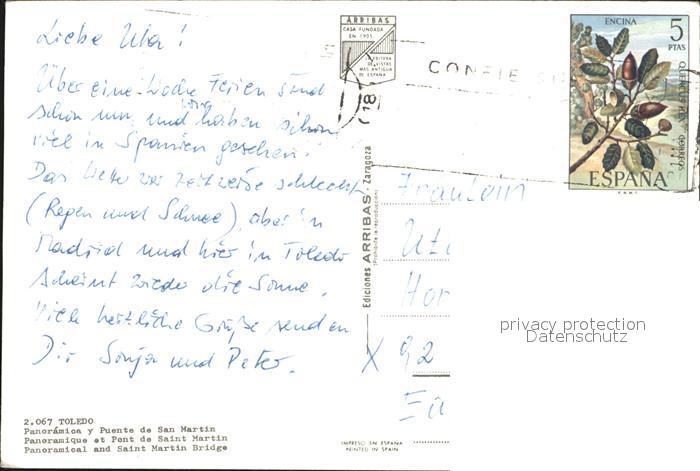 Liebe Uta!
Über eine Woche Ferien sind
schon um, und wir haben schon
viel in Spanien gesehen!
Das Wetter war zeitweise schlecht
(Regen und Schnee), aber in
Madrid und hier in Toledo
scheint wieder die Sonne.
Viele herzliche Grüße senden
Dir Sonja und Peter.
2.067 TOLEDO
Panorámica y Puente de San Martin
Panoramique et Pont de Saint Martin
Panoramical and Saint Martin Bridge
ARRIBAS
CASA FUNDADA
EN 1905
LA EDITORA
DE VISTAS
MAS ANTIGUA
DE ESPAÑA
Ediciones ARRIBAS - Zaragoza
(Prohibida la reproducción)
IMPRESO EN ESPAÑA
PRINTED IN SPAIN
(18)
CONFIE
ENCINA
5
PTAS
QUERCUS ILEX
CORREOS
ESPAÑA
F.N.M.T.
Fräulein
Uta
Hor
X 92
privacy protection
Datenschutz